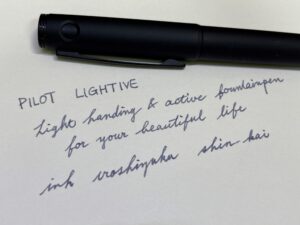 PILOT LIGHTIVE
Light handing & active fountainpen
for your beautiful life
ink iroshizuku shin-kai